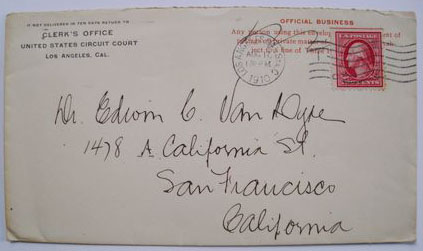 IF NOT DELIVERED IN TEN DAYS RETURN TO
CLERK'S OFFICE
UNITED STATES CIRCUIT COURT
LOS ANGELES, CAL.
OFFICIAL BUSINESS
Any person using this envelope
private matter
fine of
U.S. POSTAGE
CENTS
Dr. Edwin C. Van Dyke
1478 A California St.
San Francisco
California